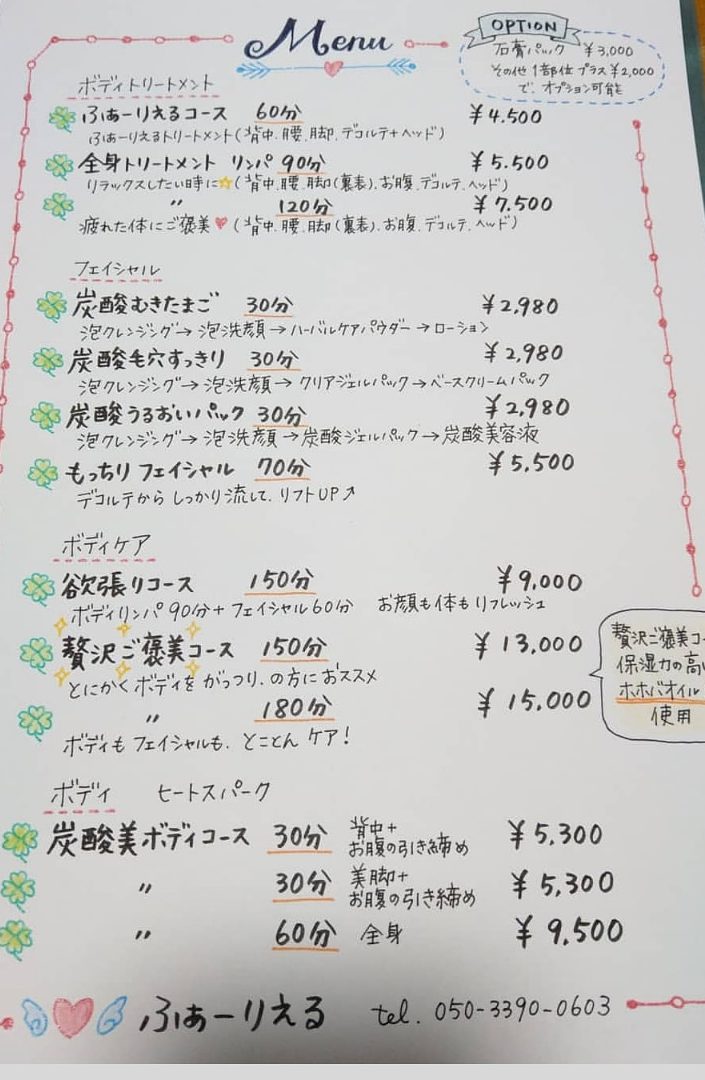 Menu
OPTION
石膏パック ¥3,000
その他1部位プラス¥2,000
で、オプション可能
ボディトリートメント
ふぁーりえるコース 60分 ¥4.500
ふぁーりえるトリートメント(背中.腰.脚.デコルテ+ヘッド)
全身トリートメント リンパ 90分 ¥5.500
リラックスしたい時に(背中.腰.脚(裏表).お腹.デコルテ.ヘッド)
〃 120分 ¥7.500
疲れた体にご褒美(背中.腰.脚(裏表).お腹.デコルテ.ヘッド)
フェイシャル
炭酸むきたまご 30分 ¥2,980
泡クレンジング→泡洗顔→ハーバルケアパウダー→ローション
炭酸毛穴すっきり 30分 ¥2,980
泡クレンジング→泡洗顔→クリアジェルパック→ベースクリームパック
炭酸うるおいパック 30分 ¥2,980
泡クレンジング→泡洗顔→炭酸ジェルパック→炭酸美容液
もっちりフェイシャル 70分 ¥5,500
デコルテからしっかり流して、リフトUP↗
ボディケア
欲張りコース 150分 ¥9,000
ボディリンパ90分+フェイシャル60分 お顔も体もリフレッシュ
贅沢ご褒美コース 150分 ¥13,000
とにかくボディをがっつり、の方におススメ
〃 180分 ¥15,000
ボディもフェイシャルも、とことんケア!
贅沢ご褒美コー
保湿力の高い
ホホバオイル
使用
ボディ ヒートスパーク
炭酸美ボディコース 30分 背中+お腹の引き締め ¥5,300
〃 30分 美脚+お腹の引き締め ¥5,300
〃 60分 全身 ¥9,500
ふぁーりえる tel. 050-3390-0603